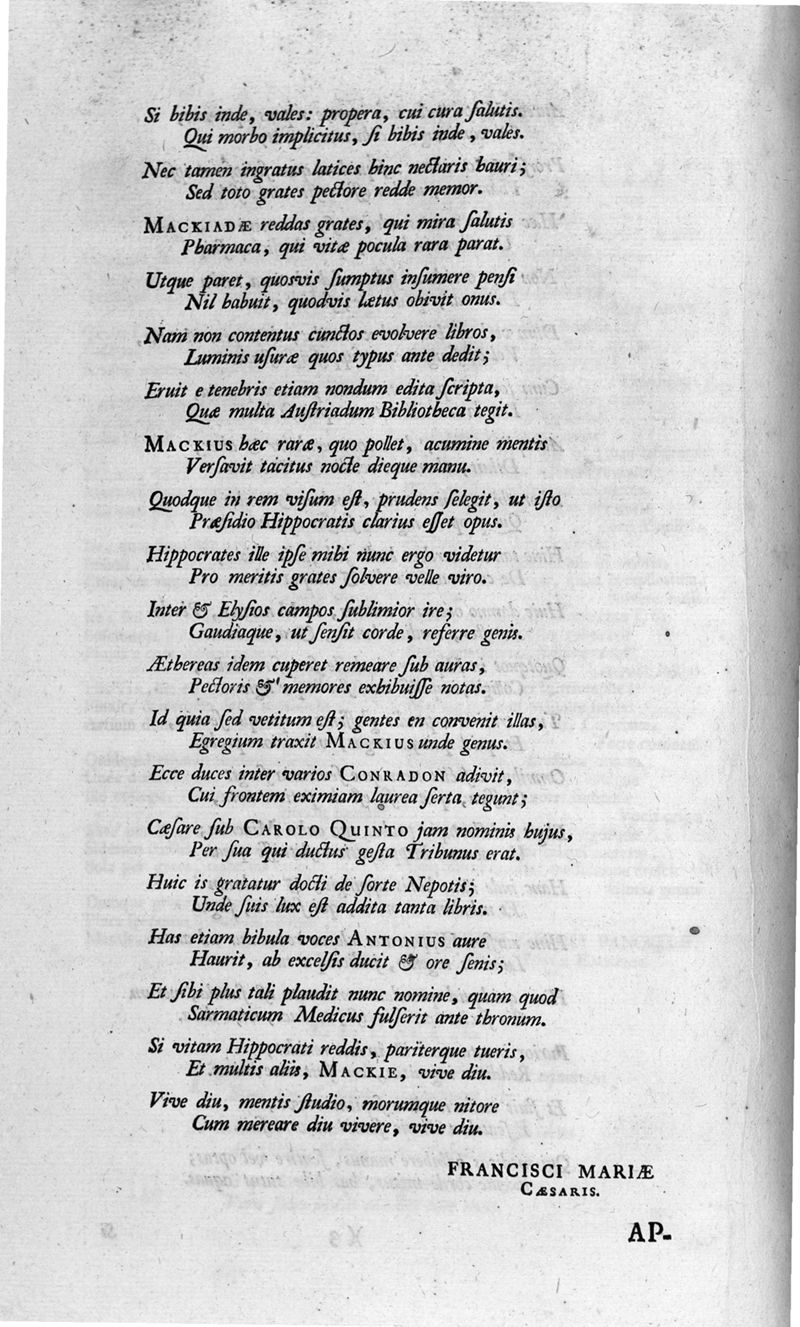 Si bibis inde, vales: propera, cui cura ſalutis.
Qui morbo implicitus, ſi bibis inde, vales.
Nec tamen ingratus latices hinc nectaris hauri;
Sed toto grates pectore redde memor.
MACKIADÆ reddas grates, qui mira ſalutis
Pharmaca, qui vitæ pocula rara parat.
Utque paret, quosvis ſumptus inſumere penſi
Nil habuit, quodvis lætus obivit onus.
Nam non contentus cunctos evolvere libros,
Luminis uſuræ quos typus ante dedit;
Eruit e tenebris etiam nondum edita ſcripta,
Quæ multa Auſtriadum Bibliotheca tegit.
MACKIUS hæc raræ, quo pollet, acumine mentis
Verſavit tacitus nocte dieque manu.
Quodque in rem viſum eſt, prudens ſelegit, ut iſto
Præſidio Hippocratis clarius eſſet opus.
Hippocrates ille ipſe mihi nunc ergo videtur
Pro meritis grates ſolvere velle viro.
Inter & Elyſios campos ſublimior ire;
Gaudiaque, ut ſenſit corde, referre genis.
Æthereas idem cuperet remeare ſub auras,
Pectoris & memores exhibuiſſe notas.
Id quia ſed vetitum eſt; gentes en convenit illas,
Egregium traxit MACKIUS unde genus.
Ecce duces inter varios CONRADON adivit,
Cui frontem eximiam laurea ſerta tegunt;
Cæſare ſub CAROLO QUINTO jam nominis hujus,
Per ſua qui ductus geſta Tribunus erat.
Huic is gratatur docti de ſorte Nepotis;
Unde ſuis lux eſt addita tanta libris.
Has etiam bibula voces ANTONIUS aure
Haurit, ab excelſis ducit & ore ſenis;
Et ſibi plus tali plaudit nunc nomine, quam quod
Sarmaticum Medicus fulſerit ante thronum.
Si vitam Hippocrati reddis, pariterque tueris,
Et multis aliis, MACKIE, vive diu.
Vive diu, mentis ſtudio, morumque nitore
Cum mereare diu vivere, vive diu.
FRANCISCI MARIÆ
CÆSARIS.
AP-